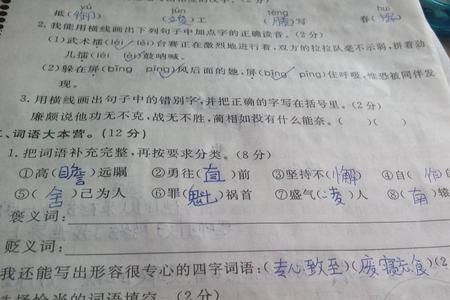 yù jùn téng huì
抵（御） （竣）工 （誊）写 春（晖）
2. 我能用横线画出下列句子中加点字的正确读音。（2分）
(1)武术擂(léi lèi)台赛正在激烈地进行着，双方的拉拉队毫不示弱，拼着劲
儿擂(léi lèi)鼓呐喊。
(2)躲在屏(bǐng píng)风后面的她，屏(bǐng píng)住呼吸，惟恐被同伴发
现。
3. 用横线画出句子中的错别字，并把正确的字写在括号里。（2分）
廉颇说他功无不克，战无不胜，蔺相如没有什么能奈。（ ）（ ）
、词语大本营。（12分）
1. 把词语补充完整，再按要求分类。（8分）
①高（瞻）远瞩 ②勇往（直）前 ③坚持不（懈） ④自（ ）自
⑤（舍）己为人 ⑥罪（魁）祸首 ⑦盛气（凌）人 ⑧（南）辕
褒义词：
贬义词：
我还能写出形容很专心的四字词语：（专心致至）（废寝忘食）（2
选择恰当的词语填空。（2分）